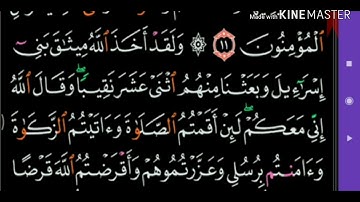 Made with KINEMASTER
ٱلْمُؤْمِنُونَ ١١ وَلَقَدْ أَخَذَ ٱللَّهُ مِيثَٰقَ بَنِىٓ
إِسْرَٰٓءِيلَ وَبَعَثْنَا مِنْهُمُ ٱثْنَىْ عَشَرَ نَقِيبًا ۖ وَقَالَ ٱللَّهُ
إِنِّى مَعَكُمْ ۖ لَئِنْ أَقَمْتُمُ ٱلصَّلَوٰةَ وَءَاتَيْتُمُ ٱلزَّكَوٰةَ
وَءَامَنتُم بِرُسُلِى وَعَزَّرْتُمُوهُمْ وَأَقْرَضْتُمُ ٱللَّهَ قَرْضًا